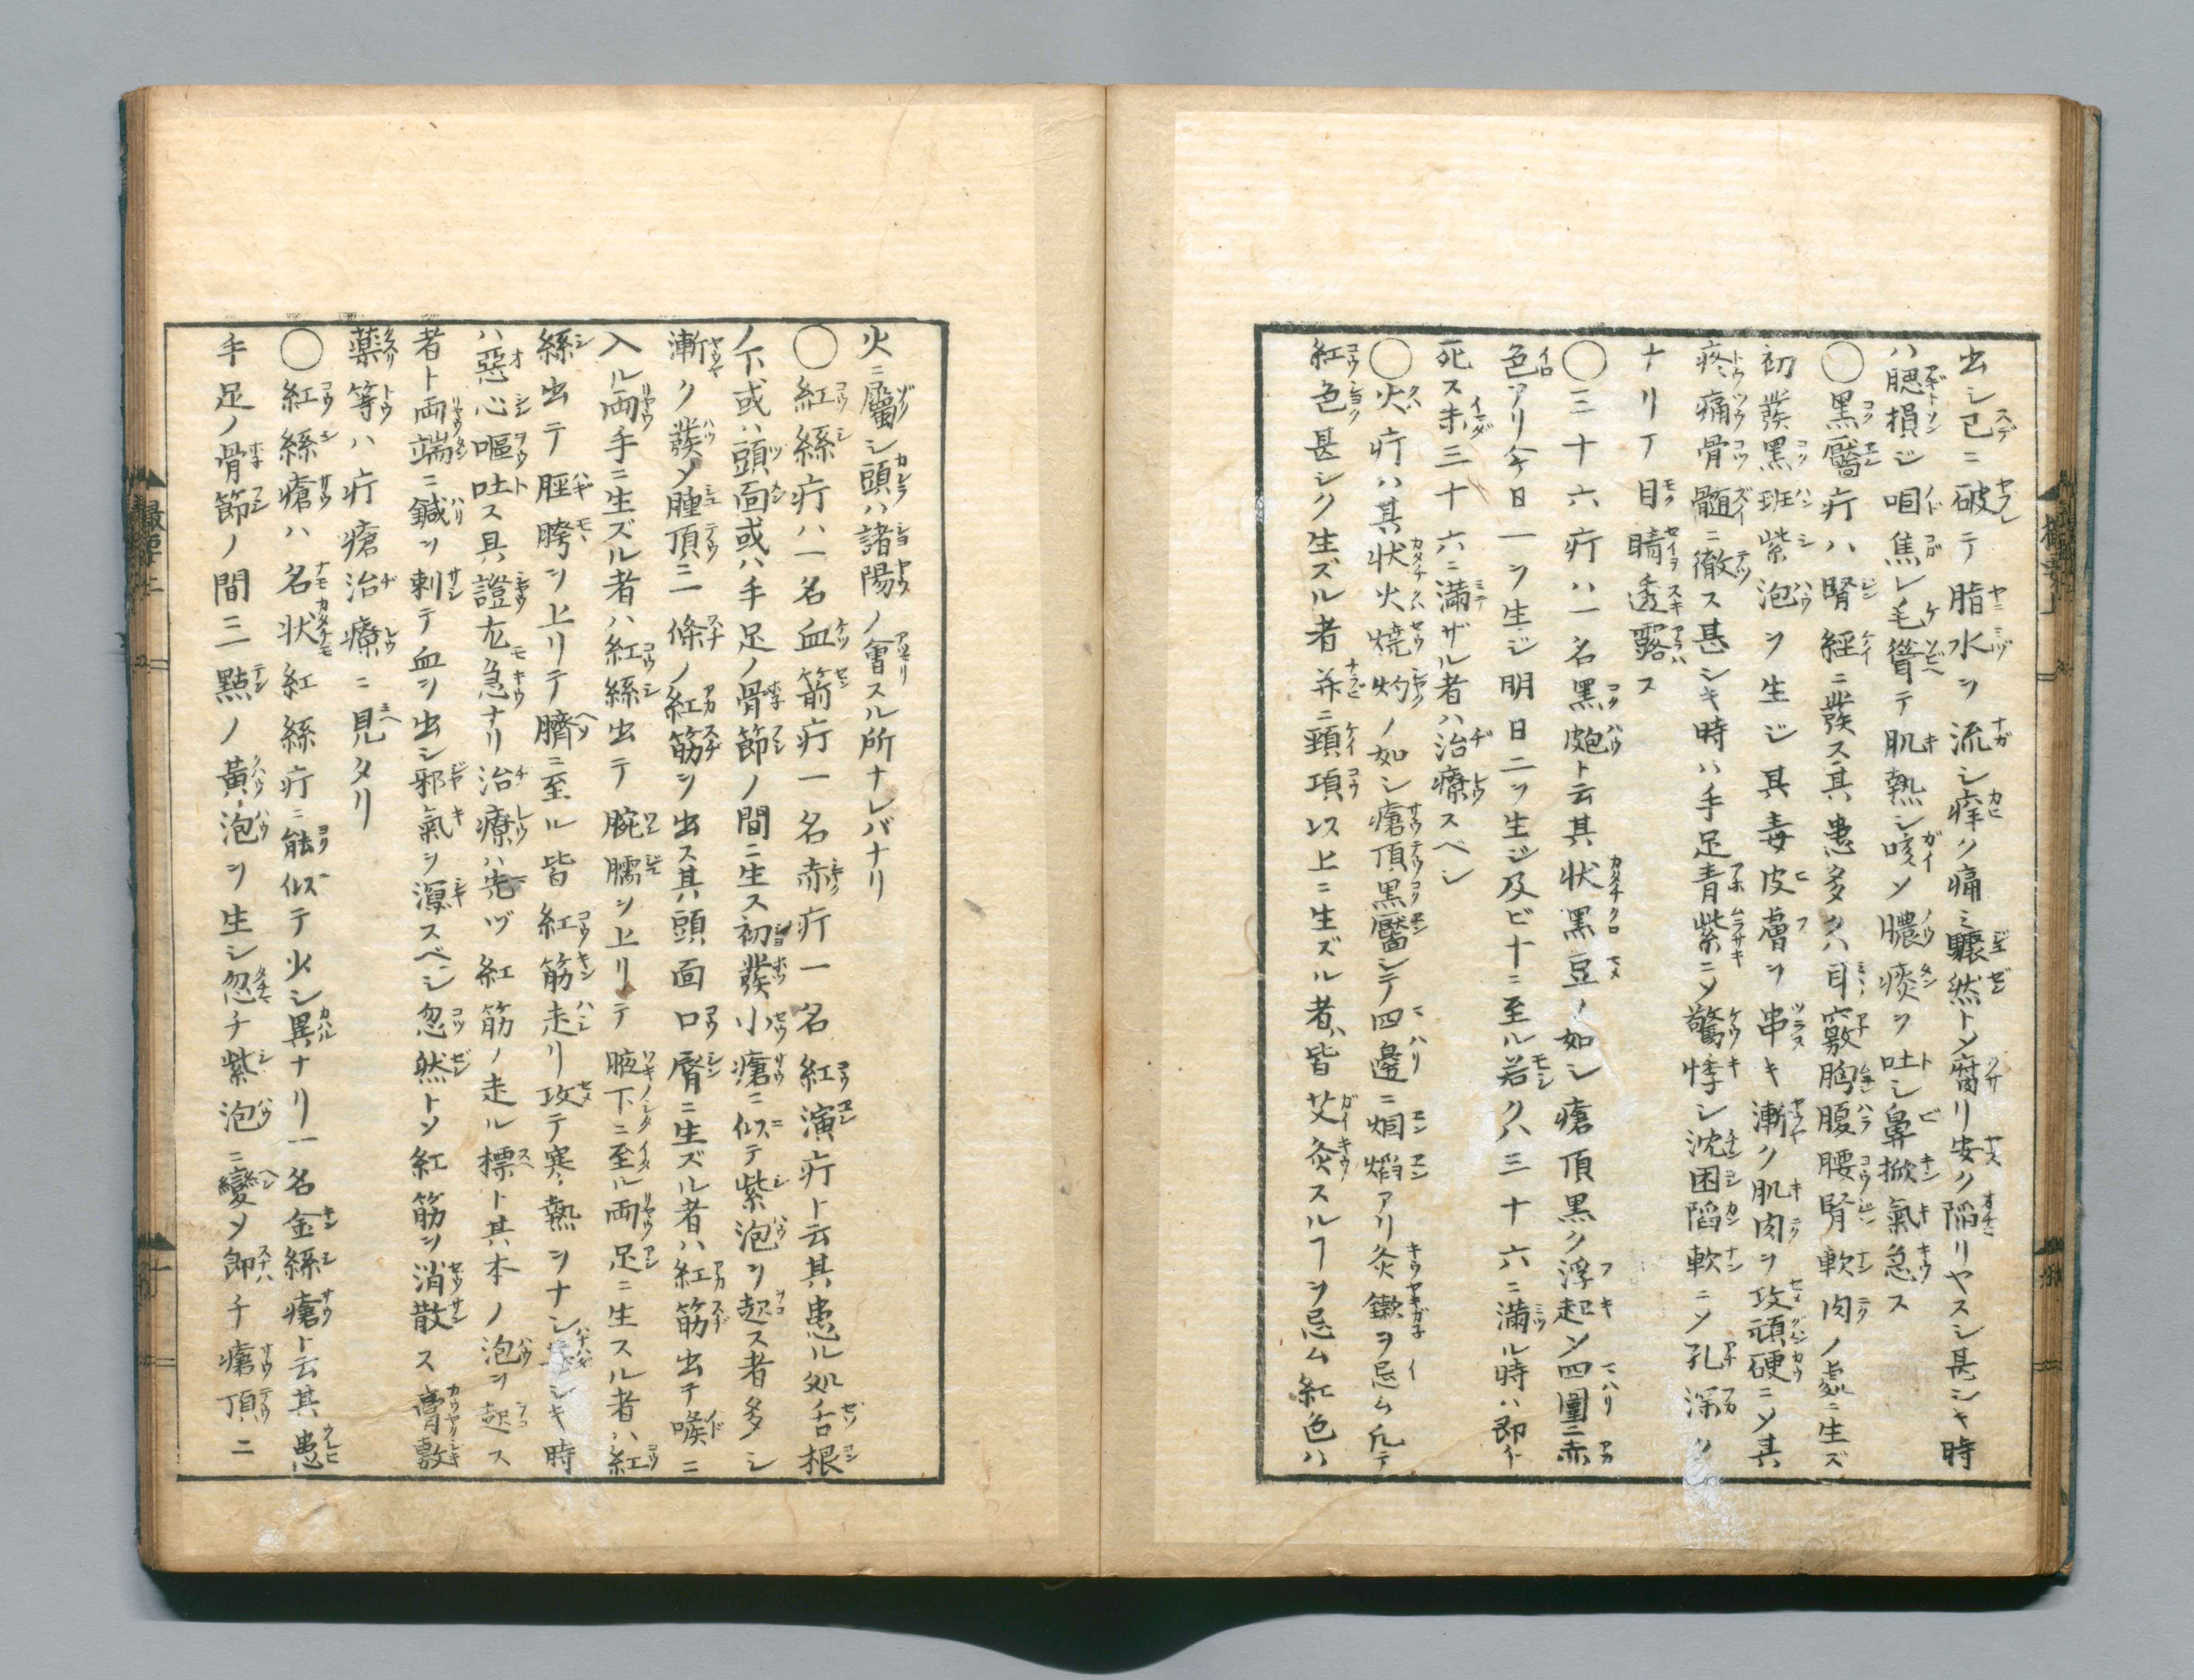 出シ已ニ破テ脂水ヲ流シ痒ク痛ミ驟然トメ腐リ安ク陥リヤスシ甚シキ時
ハ腮損ジ咽焦レ毛聳テ肌熱シ咳メ膿痰ヲ吐シ鼻掀氣急ス
〇黒靨疔ハ腎經ニ發ス其患多クハ耳竅胸腹腰腎軟肉ノ處ニ生ズ
初發黒班紫泡ヲ生ジ其毒皮膚ヲ串キ漸ク肌肉ヲ攻頑硬ニメ其
疼痛骨髄ニ徹ス甚シキ時ハ手足青紫ニメ驚悸シ沈困陷軟ニメ孔深ク
ナリテ目睛透露ス
〇三十六疔ハ一名黒皰ト云其状黒豆ノ如シ瘡頂黒ク浮起メ四圍ニ赤
色アリ今日一ツ生ジ明日二ツ生ジ及ビ十ニ至ル若クハ三十六ニ満ル時ハ即
死ス未三十六ニ満ザル者ハ治療スベシ
〇火疔ハ其状火燒灼ノ如シ瘡頂黒靨シテ四邊ニ烟焰アリ灸鏾ヲ忌ム凡テ
紅色甚シク生ズル者并ニ頸項以上ニ生ズル者ハ皆艾灸スルヿヲ忌ム紅色ハ
火ニ屬シ頭ハ諸陽ノ會スル所ナレバナリ
〇紅絲疔ハ一名血箭疔一名赤疔一名紅演疔ト云其患ル処舌根
ノ下或ハ頭面或ハ手足ノ骨節ノ間ニ生ス初發小瘡ニ似テ紫泡ヲ起ス者多シ
漸ク發メ腫頂ニ一條ノ紅筋ヲ出ス其頭面口脣ニ生ズル者ハ紅筋出テ喉ニ
入ル両手ニ生ズル者ハ紅絲出テ腕臑ヲ上リテ腋下ニ至ル両足ニ生スル者ハ紅
絲出テ脛胯ヲ上リテ臍ニ至ル皆紅筋走リ攻テ寒熱ヲナシ甚シキ時
ハ惡心嘔吐ス具證尤急ナリ治療ハ先ヅ紅筋ノ走ル標ト其本ノ泡ヲ起ス
者ト両端ニ鍼ヲ刺テ血ヲ出シ邪氣ヲ瀉スベシ忽然トメ紅筋ヲ消散ス膏敷
藥等ハ疔瘡治療ニ見タリ
〇紅絲瘡ハ名状紅絲疔ニ能似テ少シ異ナリ一名金絲瘡ト云其患
手足ノ骨節ノ間三點ノ黄泡ヲ生シ忽チ紫泡ニ變メ即チ瘡頂ニ